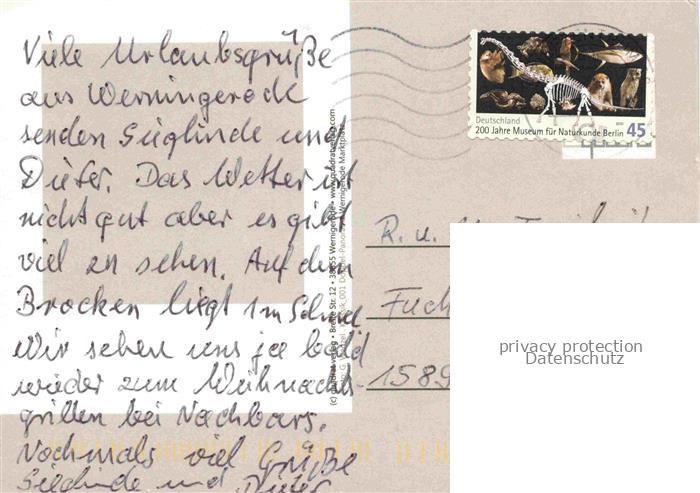 Viele Urlaubsgrüße
aus Werningerode
senden Sieglinde und
Dieter. Das Wetter ist
nicht gut aber es gibt
viel zu sehen. Auf dem
Brocken liegt 1m Schnee
Wir sehen uns ja bald
wieder zum Weihnachts-
grillen bei Nachbars.
Nochmals viel Grüße
Sieglinde und Dieter
Deutschland
200 Jahre Museum für Naturkunde Berlin 45
R. u.
Fuch
1589
privacy protection
Datenschutz
(c) quadratverlag • Breite Str. 12 • 38855 Wernigerode • www.quadratverlag.com
Wernigerode Marktplatz